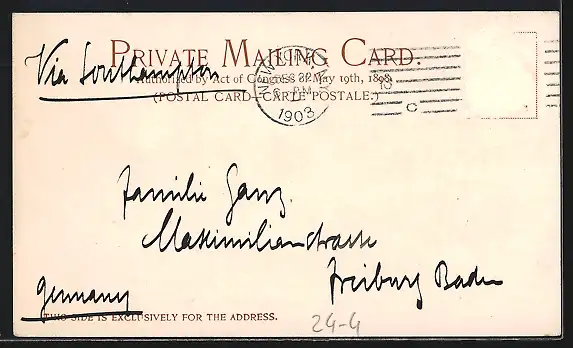 PRIVATE MAILING CARD.
Via Southampton
Authorized by Act of Congress of May 19th, 1898.
(POSTAL CARD—CARTE POSTALE.)
NEW
PM
1903
C
Familie Ganz.
Maximilianstrasse
Freiburg Baden
Germany
THIS SIDE IS EXCLUSIVELY FOR THE ADDRESS.
24-4